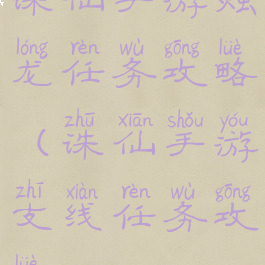 诛仙手游烛
lóng rèn wù gōng lüè
龙任务攻略
zhū xiān shǒu yóu
（诛仙手游
zhī xiàn rèn wù gōng
支线任务攻
lüè